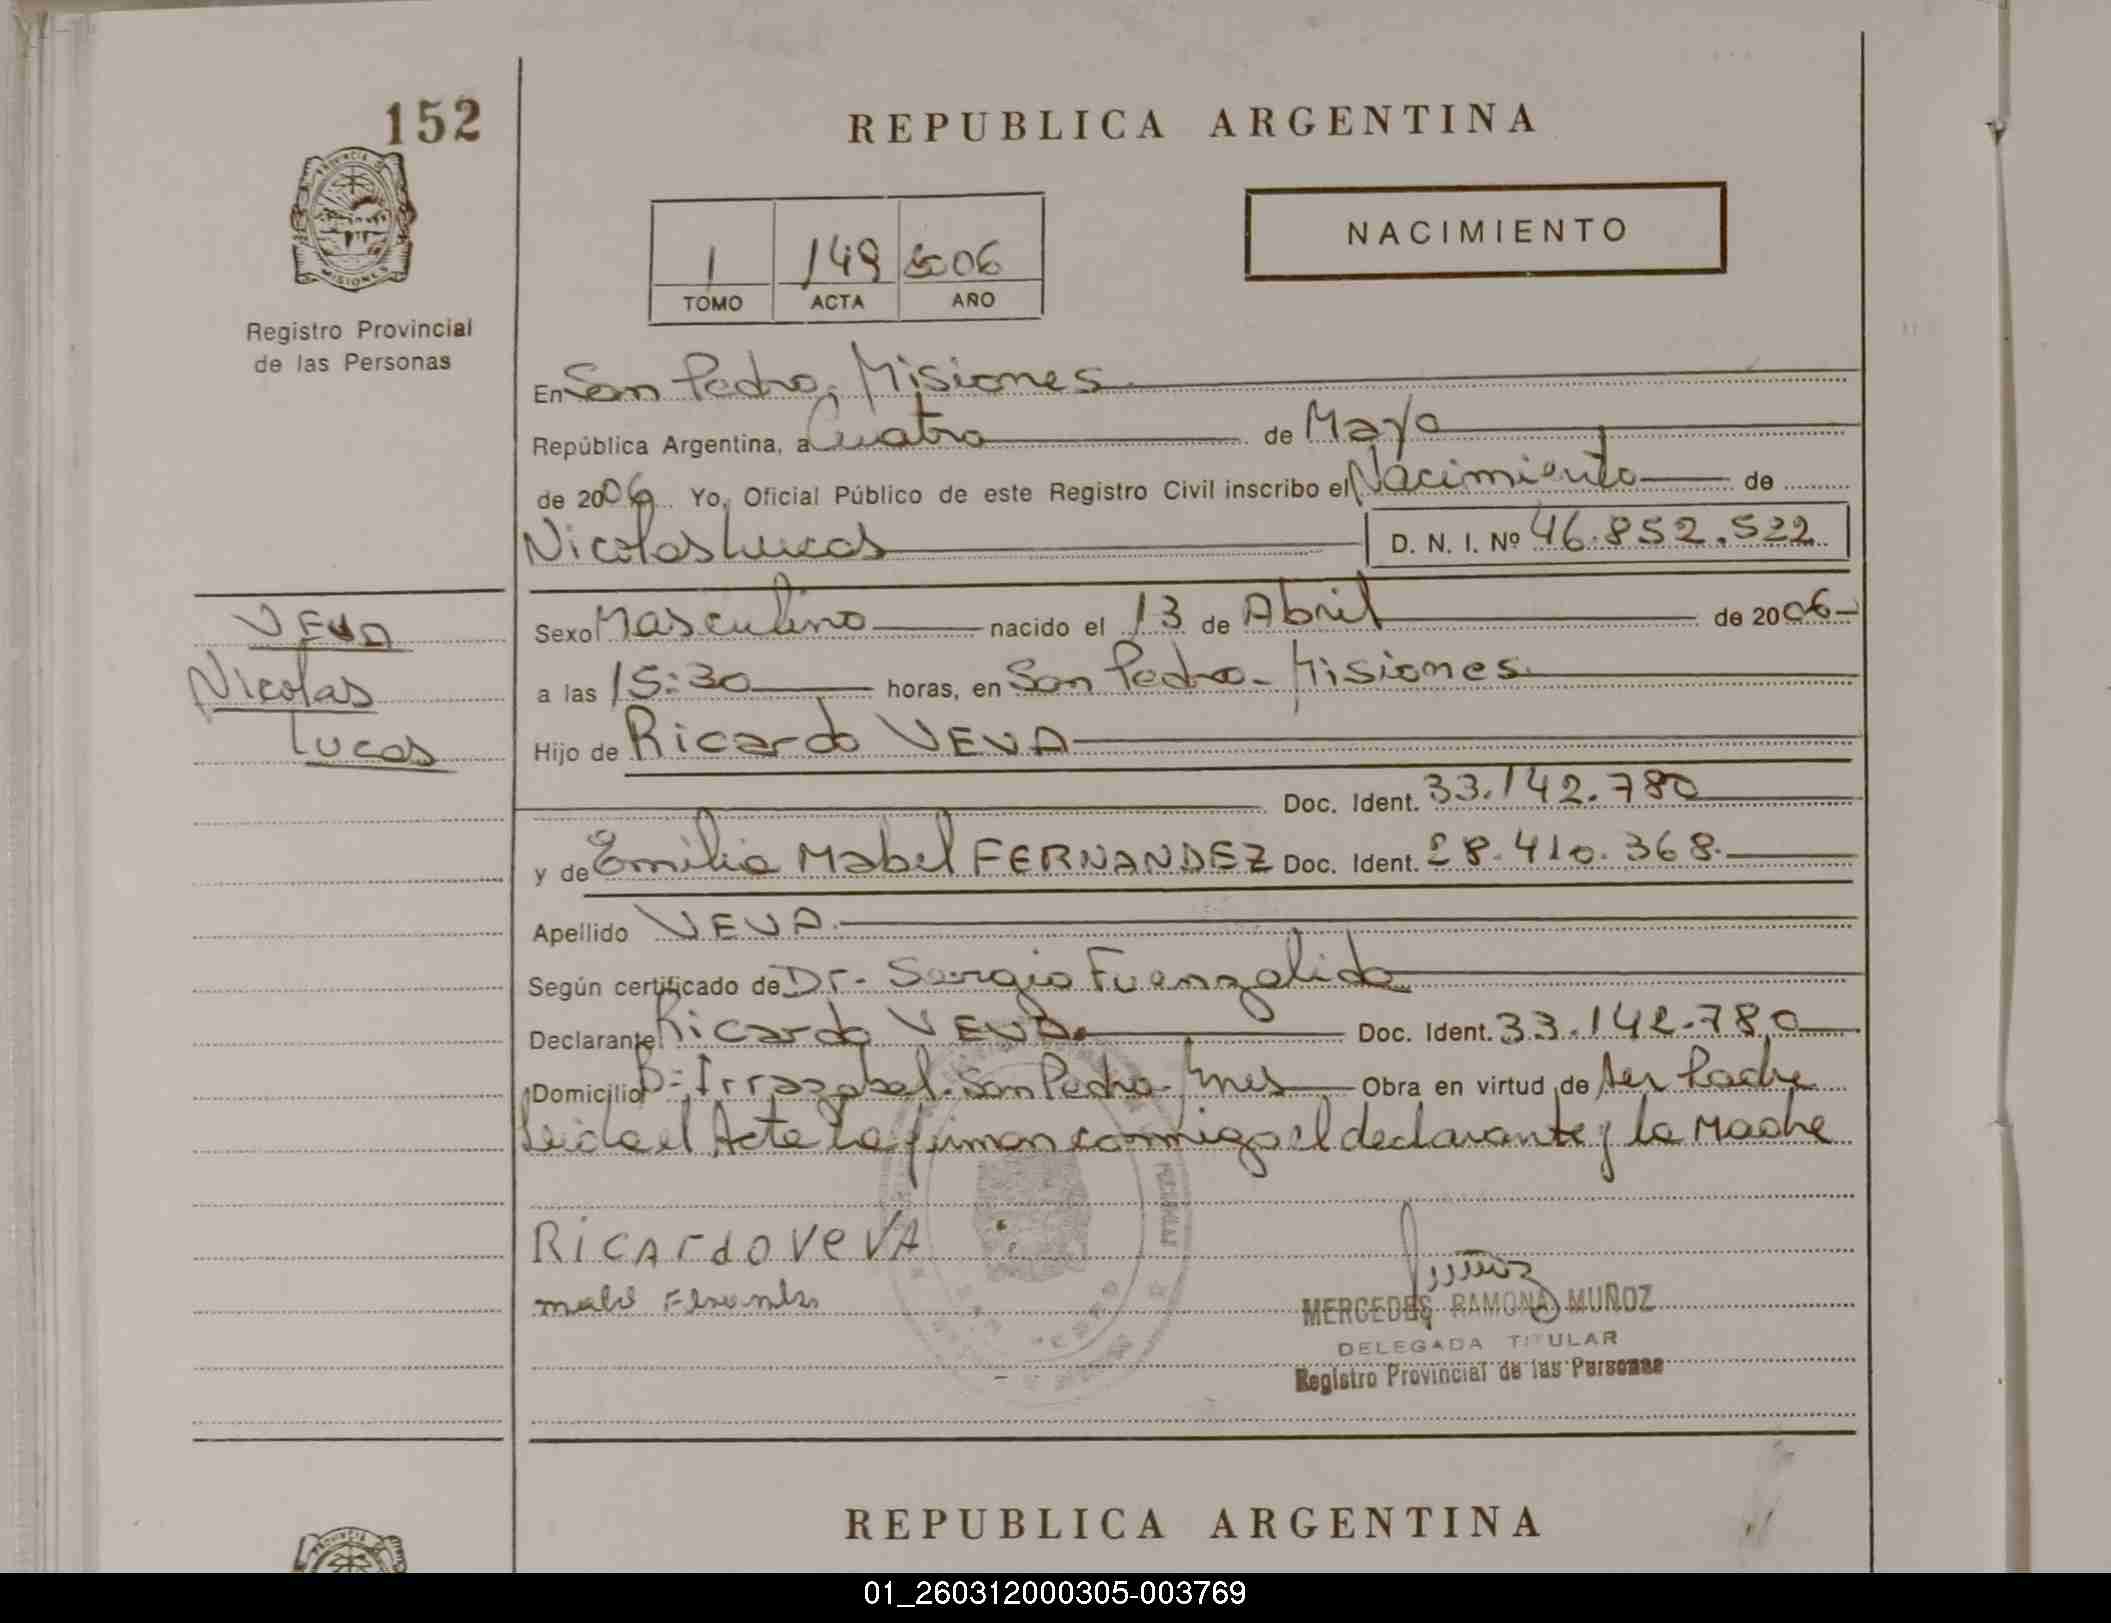 152
REPUBLICA ARGENTINA
PROVINCIA DE
MISIONES
NACIMIENTO
1 149 2006
TOMO ACTA AÑO
Registro Provincial
de las Personas
En San Pedro, Misiones
República Argentina, a Cuatro de Mayo
de 2006 Yo, Oficial Público de este Registro Civil inscribo el Nacimiento de
Nicolas Lucas D. N. I. Nº 46.852.522
VEVA
Nicolas
Lucas
Sexo Masculino nacido el 13 de Abril de 2006
a las 15:30 horas, en San Pedro - Misiones
Hijo de Ricardo VEVA
Doc. Ident. 33.142.780
y de Emilia Mabel FERNANDEZ Doc. Ident. 28.410.368
Apellido VEVA
Según certificado de Dr. Sergio Fuenzalida
Declarante Ricardo VEVA Doc. Ident. 33.142.780
Domicilio Bº Irrazabal - San Pedro - Mnes Obra en virtud de ser Padre
Leida el Acta La firman conmigo el declarante y la Madre
RicArdo VeVA
MERCEDES RAMONA MUÑOZ
DELEGADA TITULAR
Registro Provincial de las Personas
REPUBLICA ARGENTINA
01_260312000305-003769